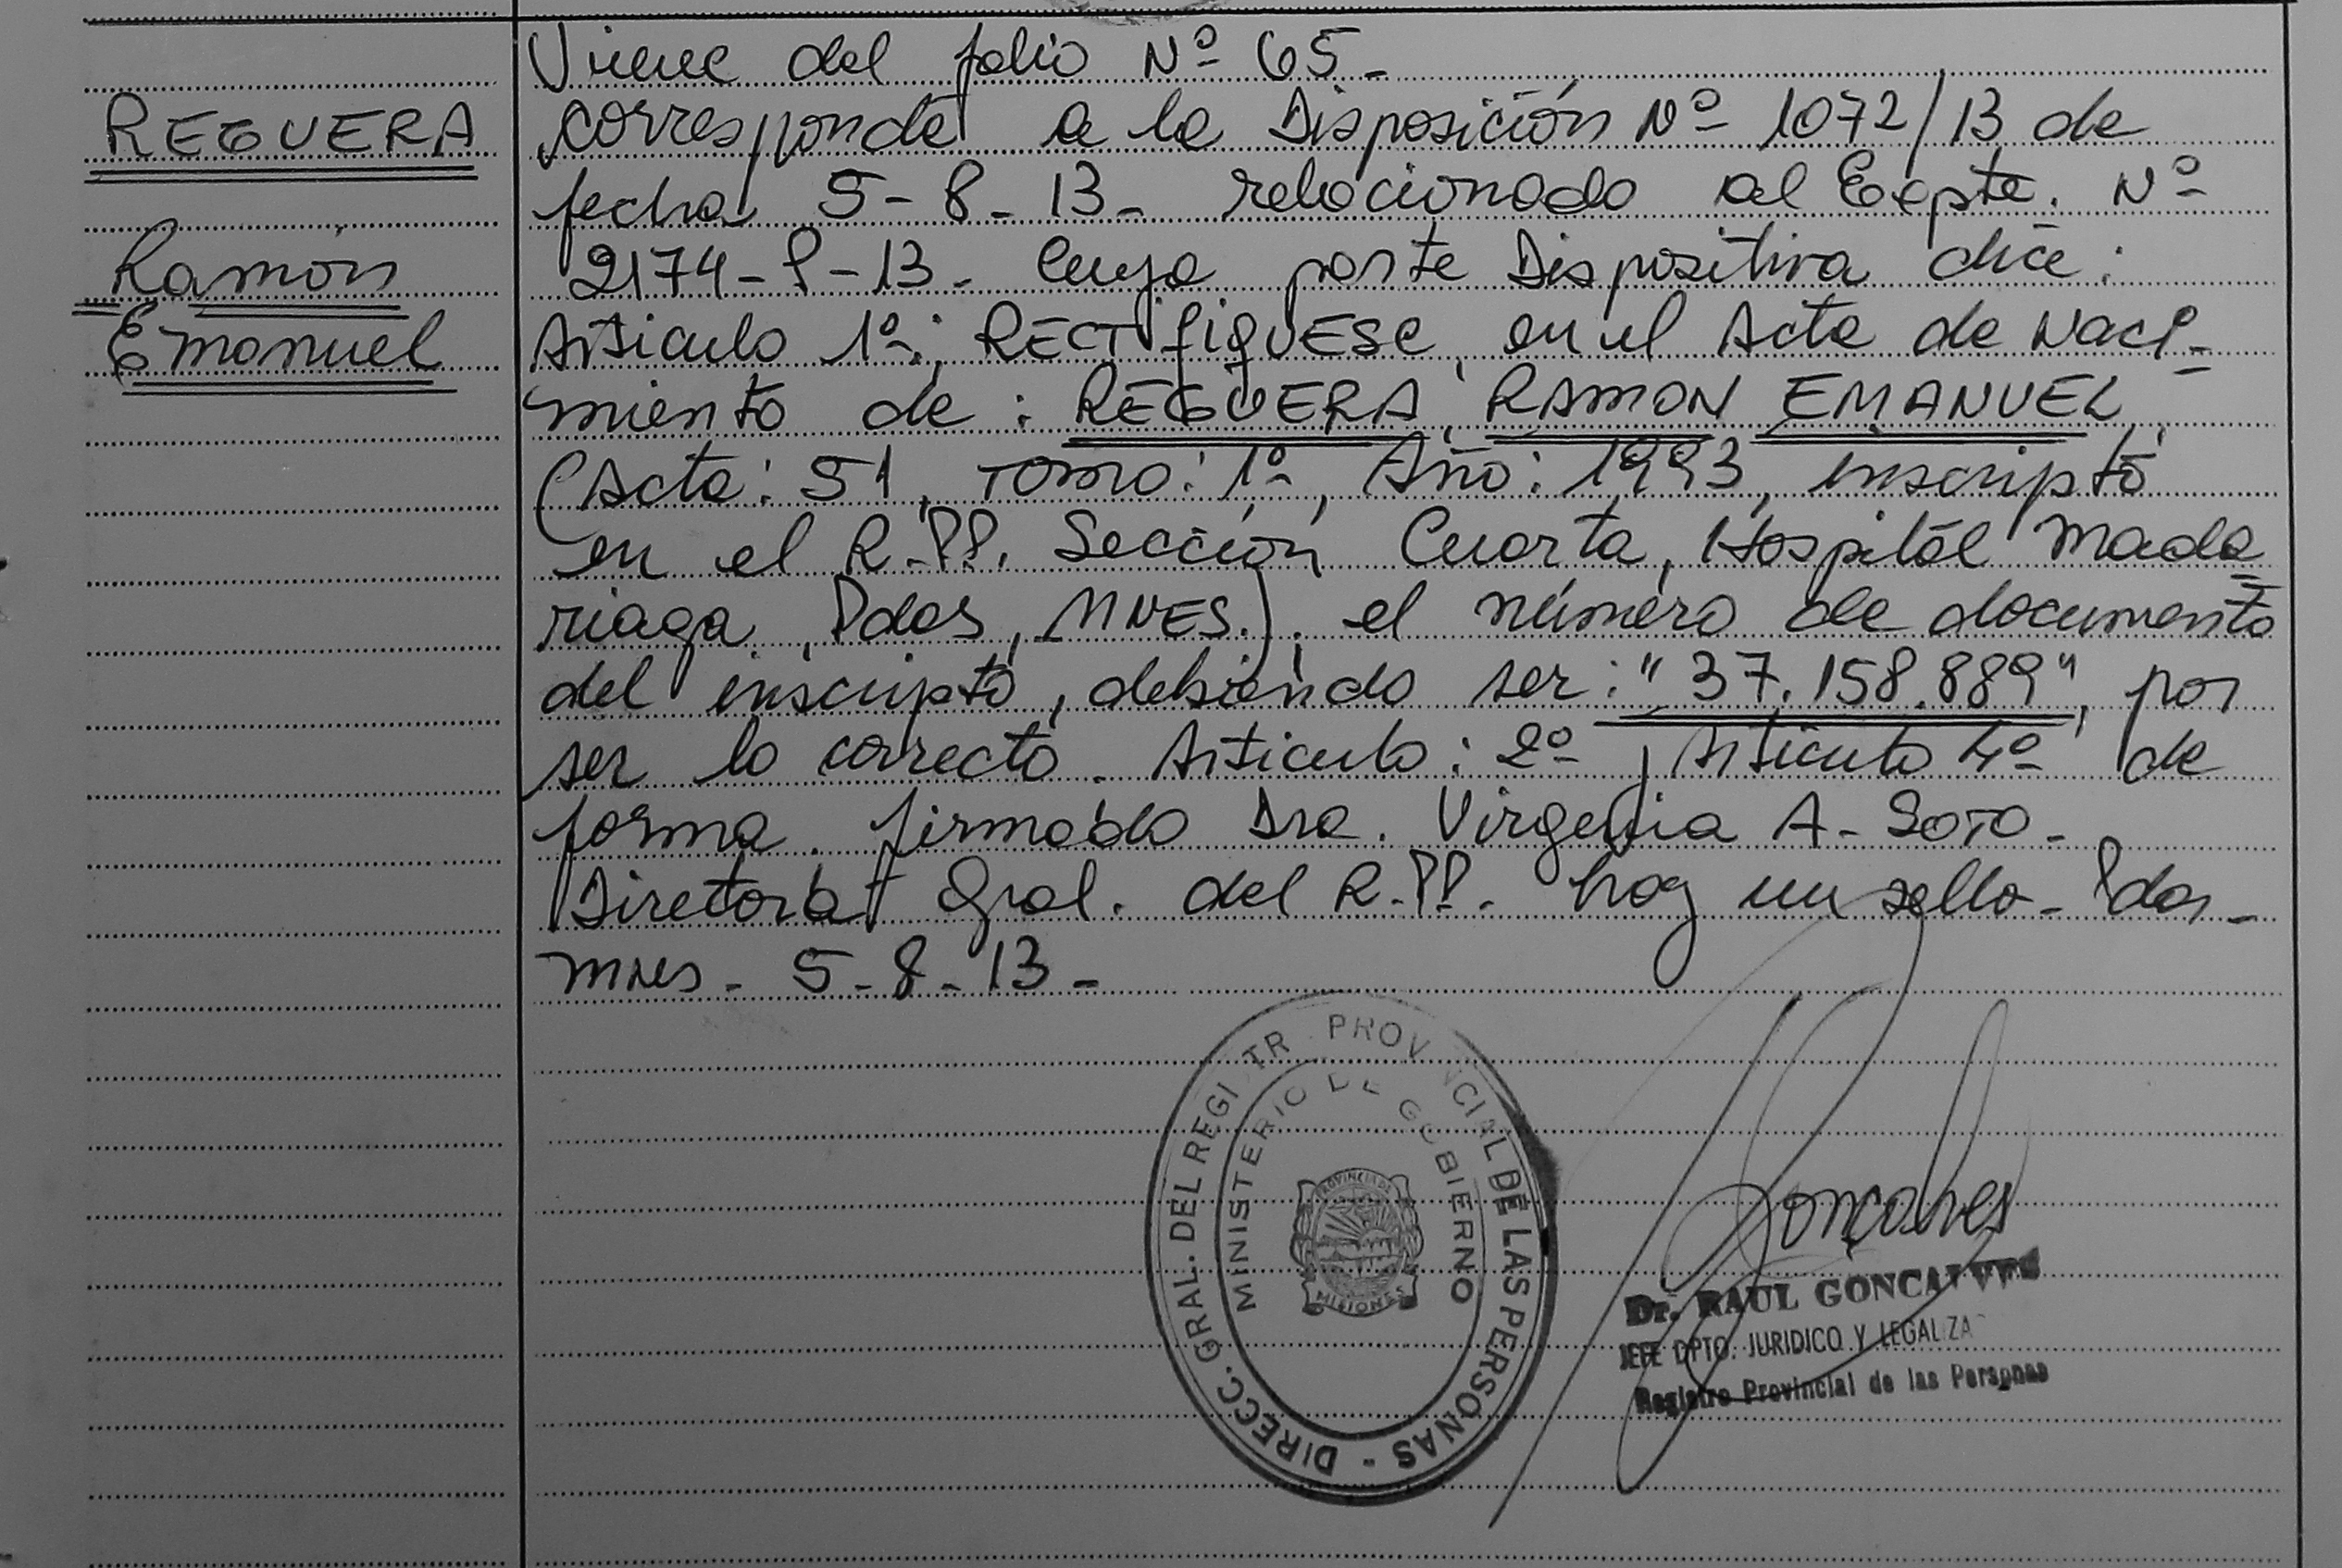 REGUERA
Ramón
Emanuel
Viene del folio Nº 65-
corresponde a la Disposición Nº 1072/13 de
fecha 5-8-13- relacionado al Expte. Nº
2174-P-13- Cuya parte Dispositiva dice:
Artículo 1º: RECTIFIQUESE, en el Acta de Naci-
miento de: REGUERA, RAMON EMANUEL,
(Acta: 51, Tomo: 1º, Año: 1993, inscripto
en el R.PP. Sección Cuarta, Hospital Mada=
riaga, Pdas, MNES.), el número de documento
del inscripto, debiendo ser: "37.158.889", por
ser lo correcto. Artículo: 2º y Artículo 4º de
forma. firmado Dra. Virginia A. SOTO-
Diretora Gral. del R.PP. hay un sello- Pdas-
Mnes- 5-8-13-
DIRECC. GRAL. DEL REGI TR PROVINCIAL DE LAS PERSONAS -
MINISTERIO DE GOBIERNO
PROVINCIA DE
MISIONES
Goncalves
Dr. RAUL GONCALVES
JEFE DPTO. JURIDICO Y LEGALIZA
Registro Provincial de las Personas